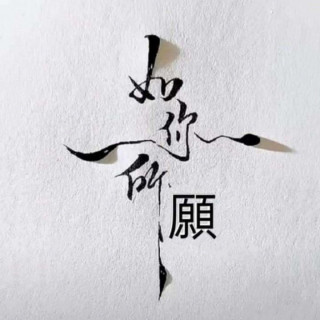 如你所願